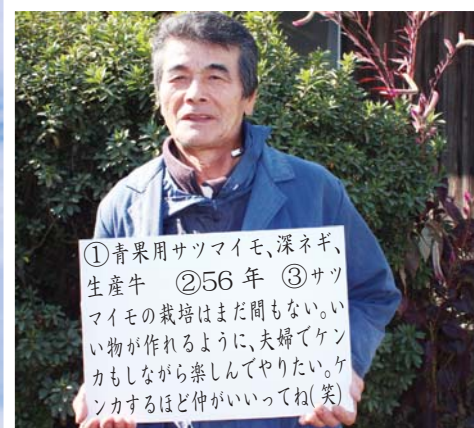 ①青果用サツマイモ、深ネギ、
生産牛　②56年　③サツ
マイモの栽培はまだ間もない。い
い物が作れるように、夫婦でケン
カもしながら楽しんでやりたい。ケ
ンカするほど仲がいいってね(笑)